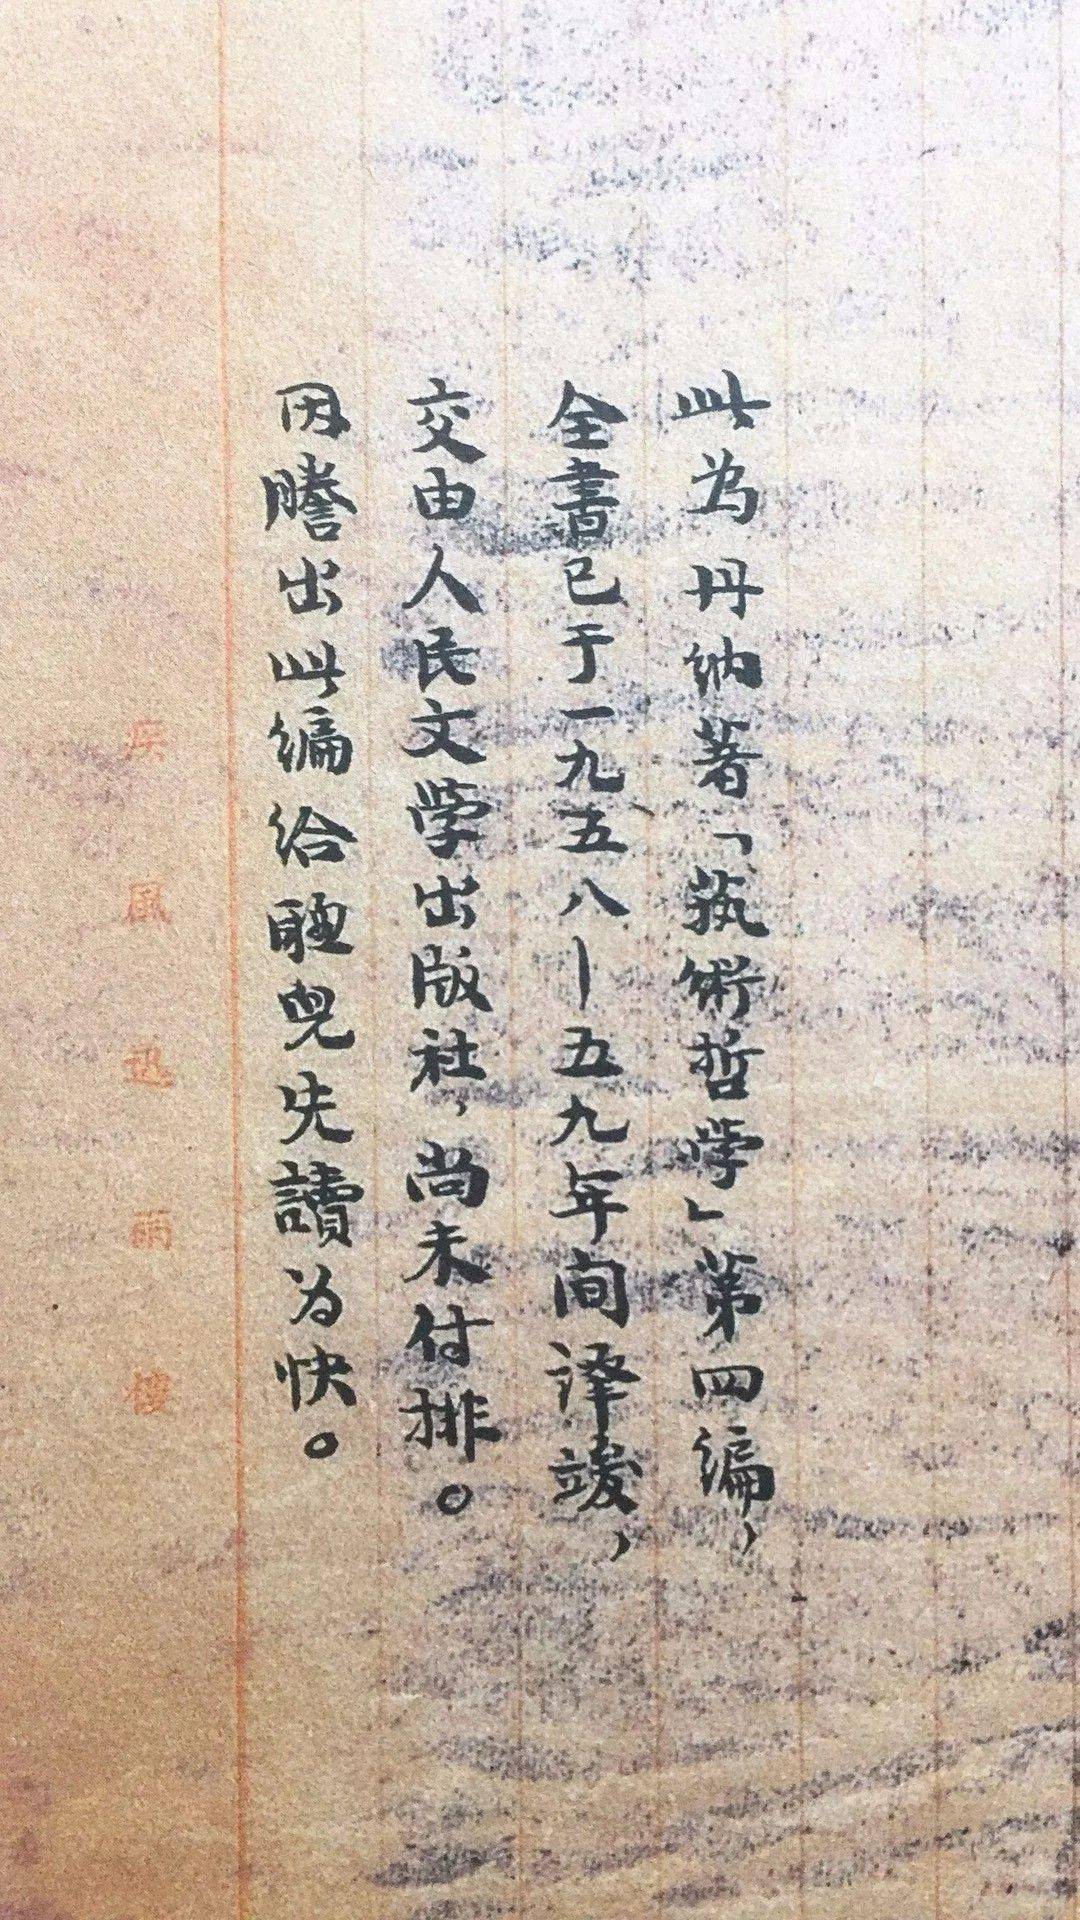 此为丹纳著「执術哲学」第四编，
全書已于一九五八—五九年间译竣，
交由人民文学出版社，尚未付排。
因謄出此编给聪兒先讀为快。
疾風迅雨樓